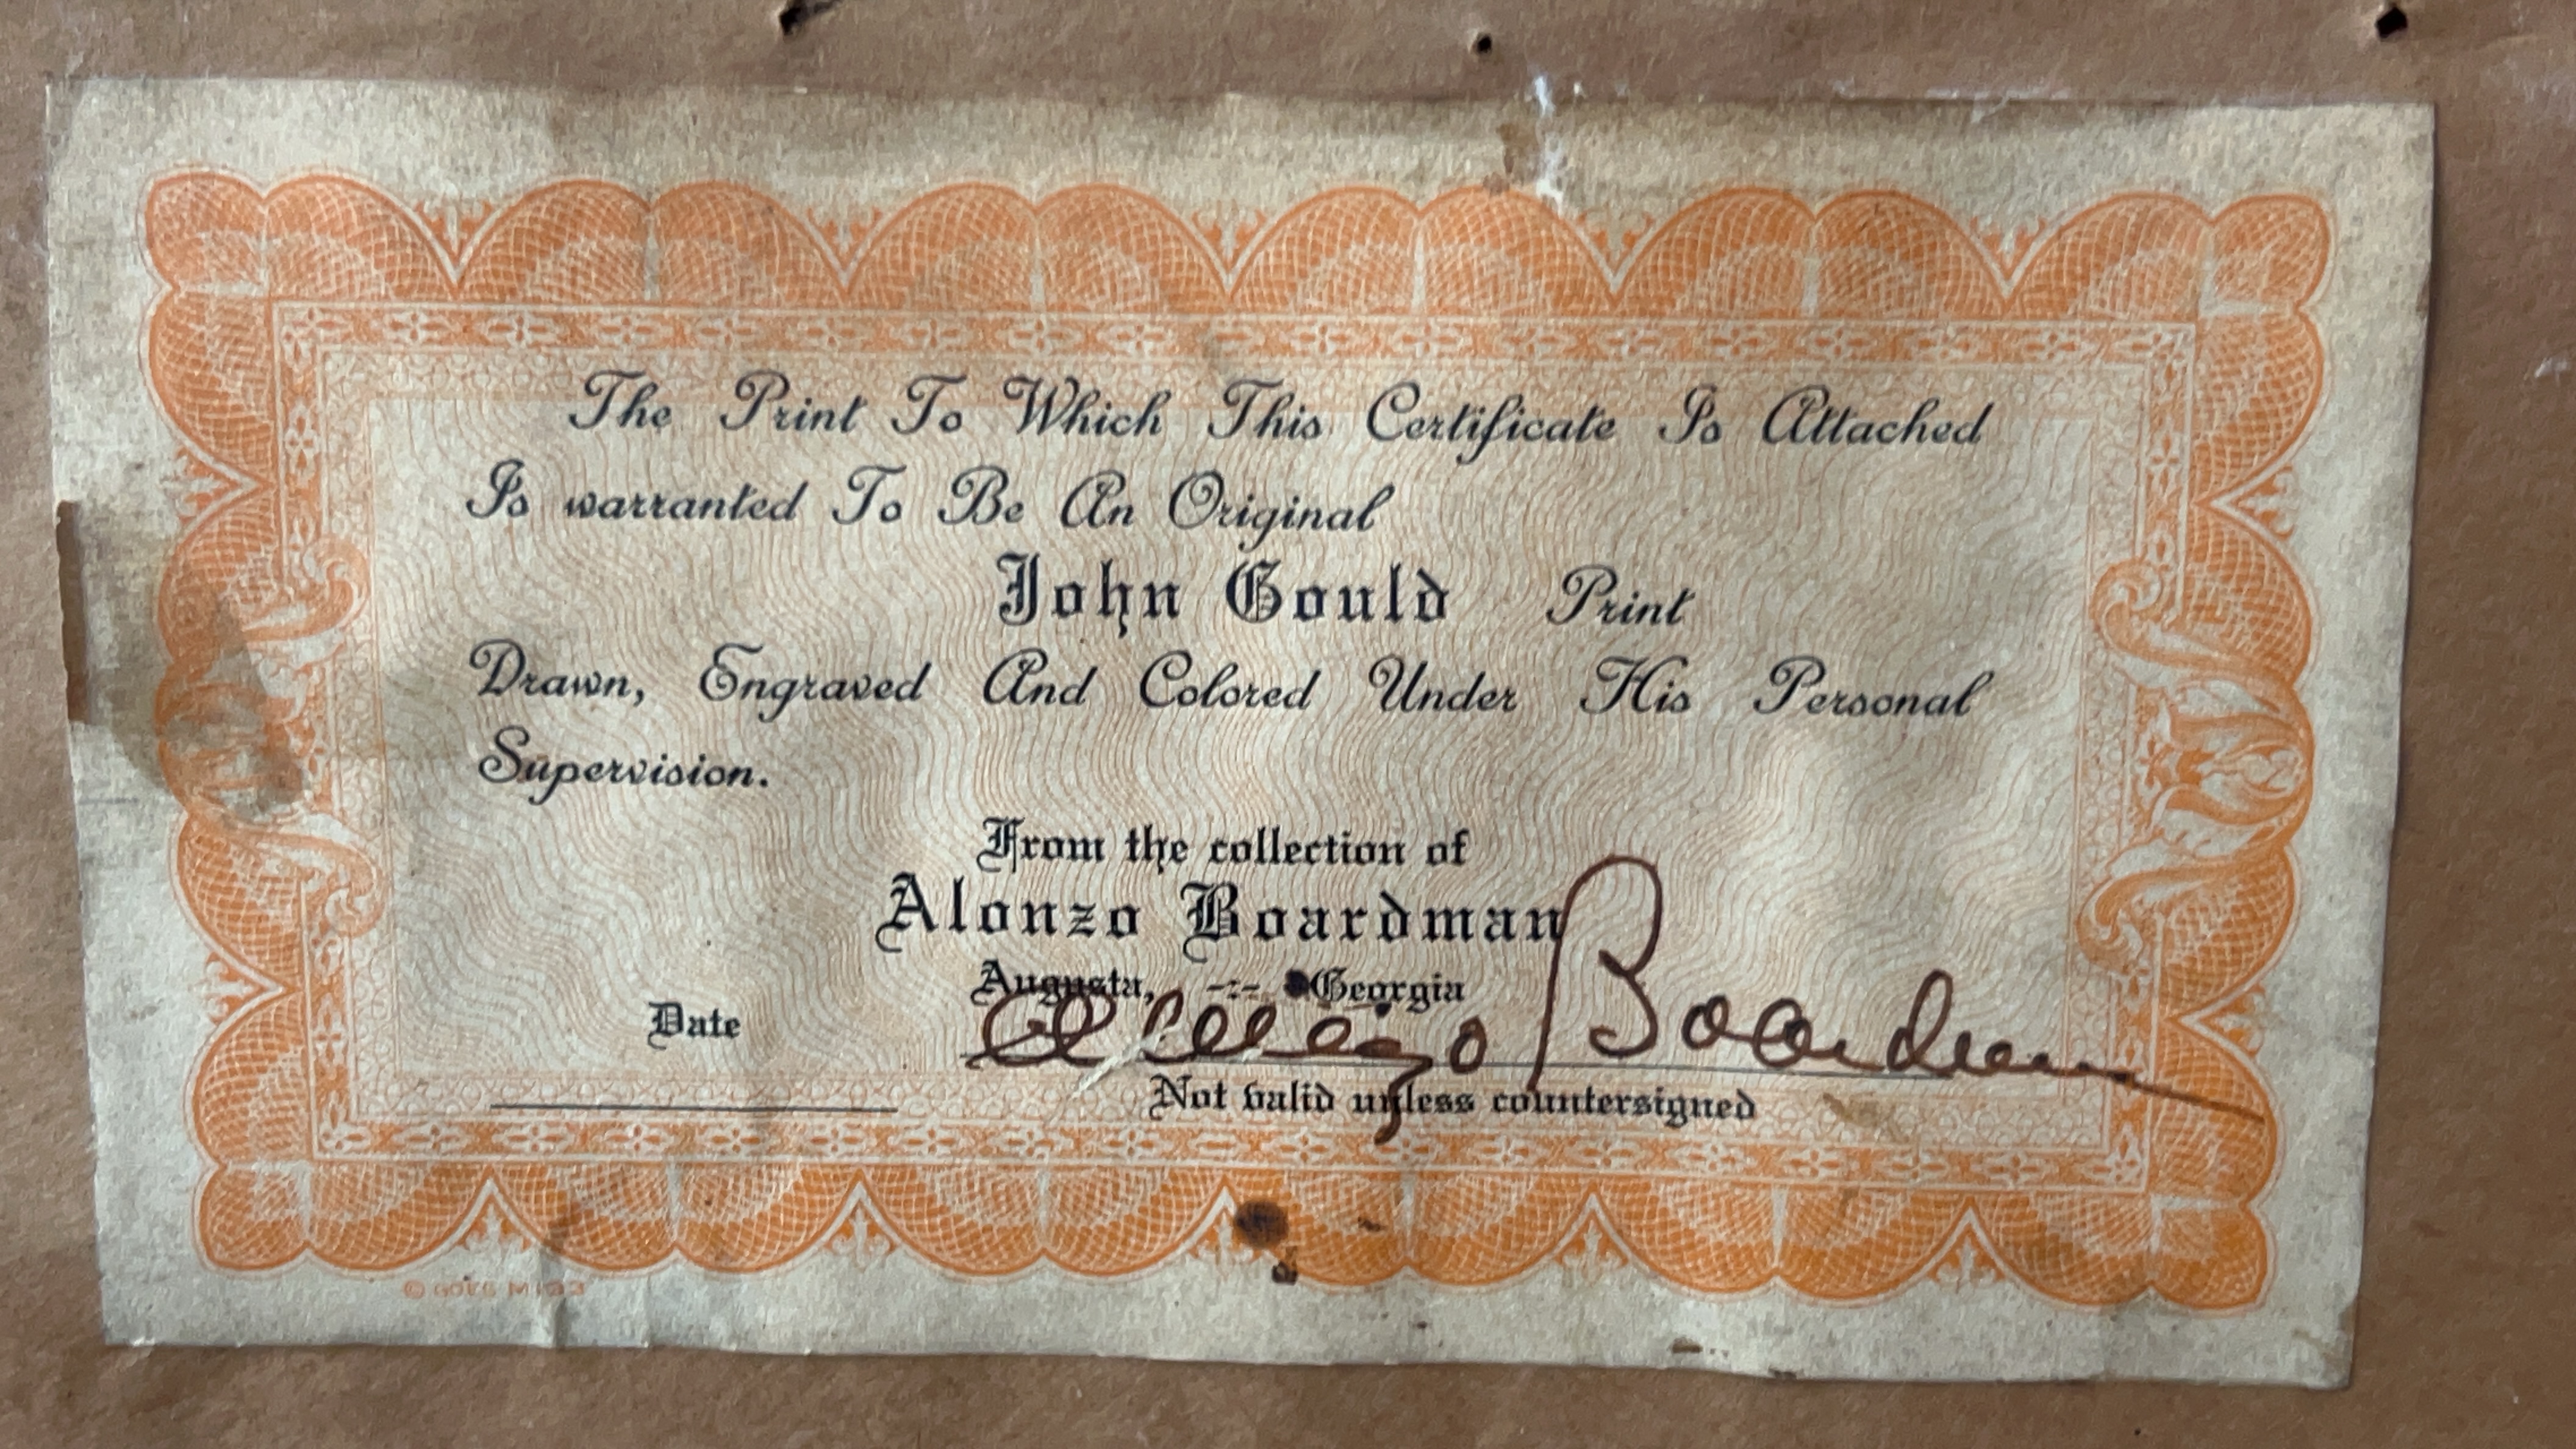 The Print To Which This Certificate Is Attached
Is warranted To Be An Original
John Gould Print
Drawn, Engraved And Colored Under His Personal
Supervision.
From the collection of
Alonzo Boardman
Augusta, -:- Georgia
Date
Alonzo Boardman
Not valid unless countersigned
© GOES